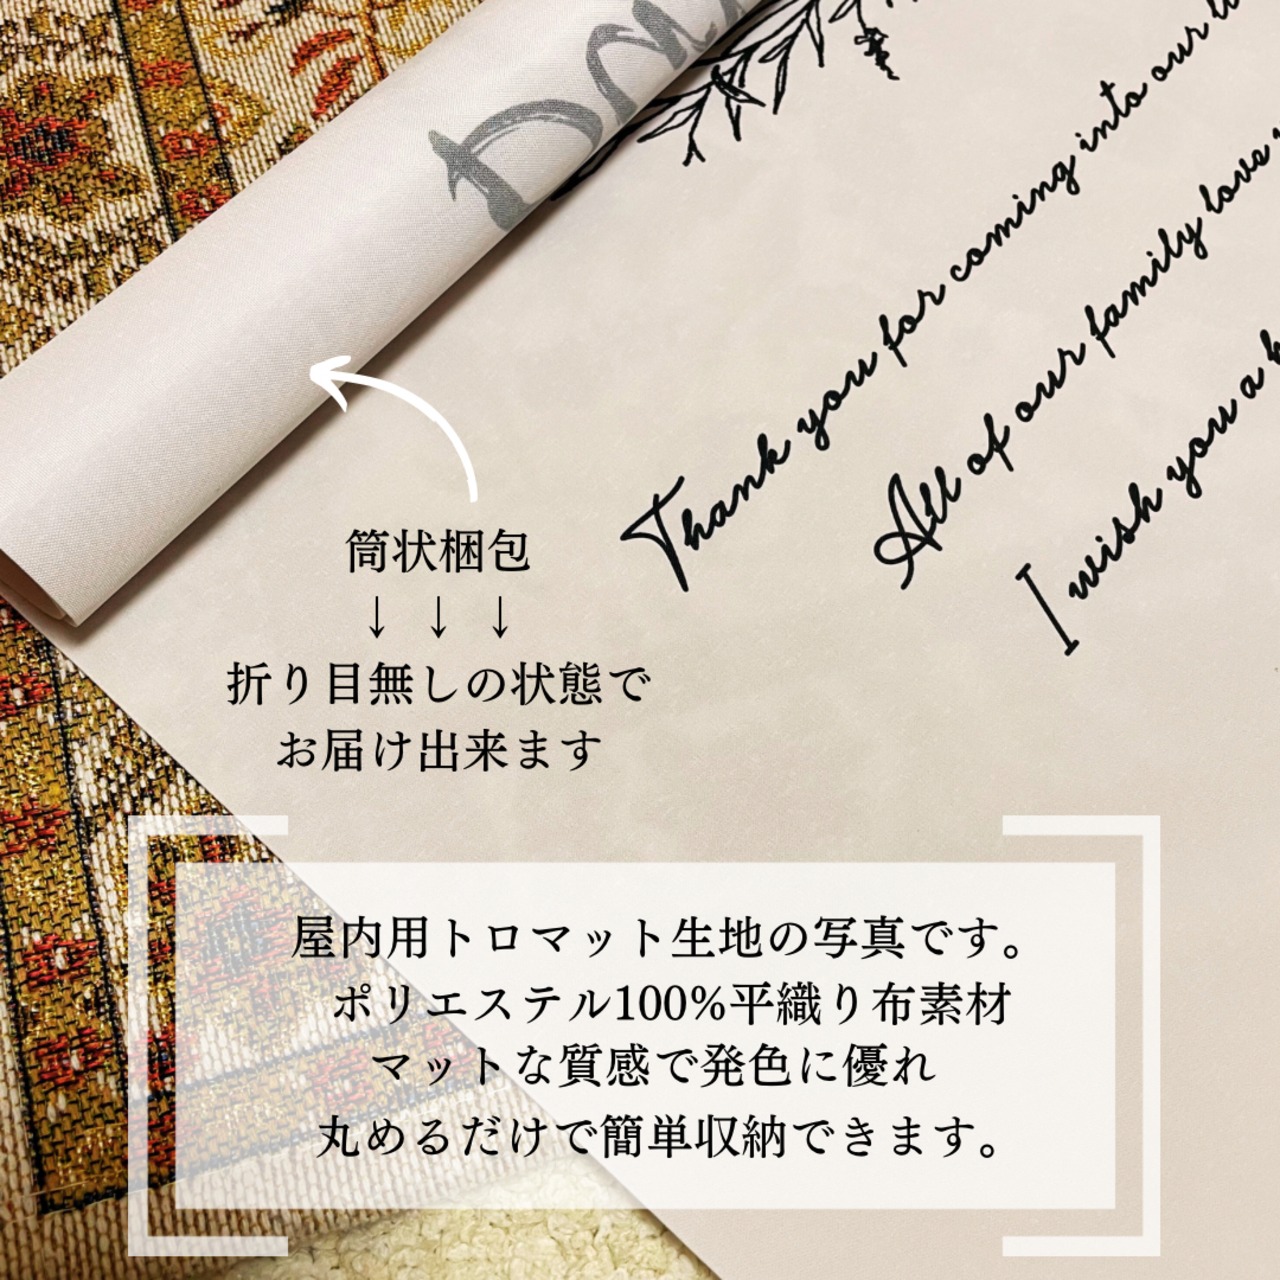 Thank you for coming into our
All of our family love
I wish you a
筒状梱包
↓ ↓ ↓
折り目無しの状態で
お届け出来ます
屋内用トロマット生地の写真です。
ポリエステル100%平織り布素材
マットな質感で発色に優れ
丸めるだけで簡単収納できます。